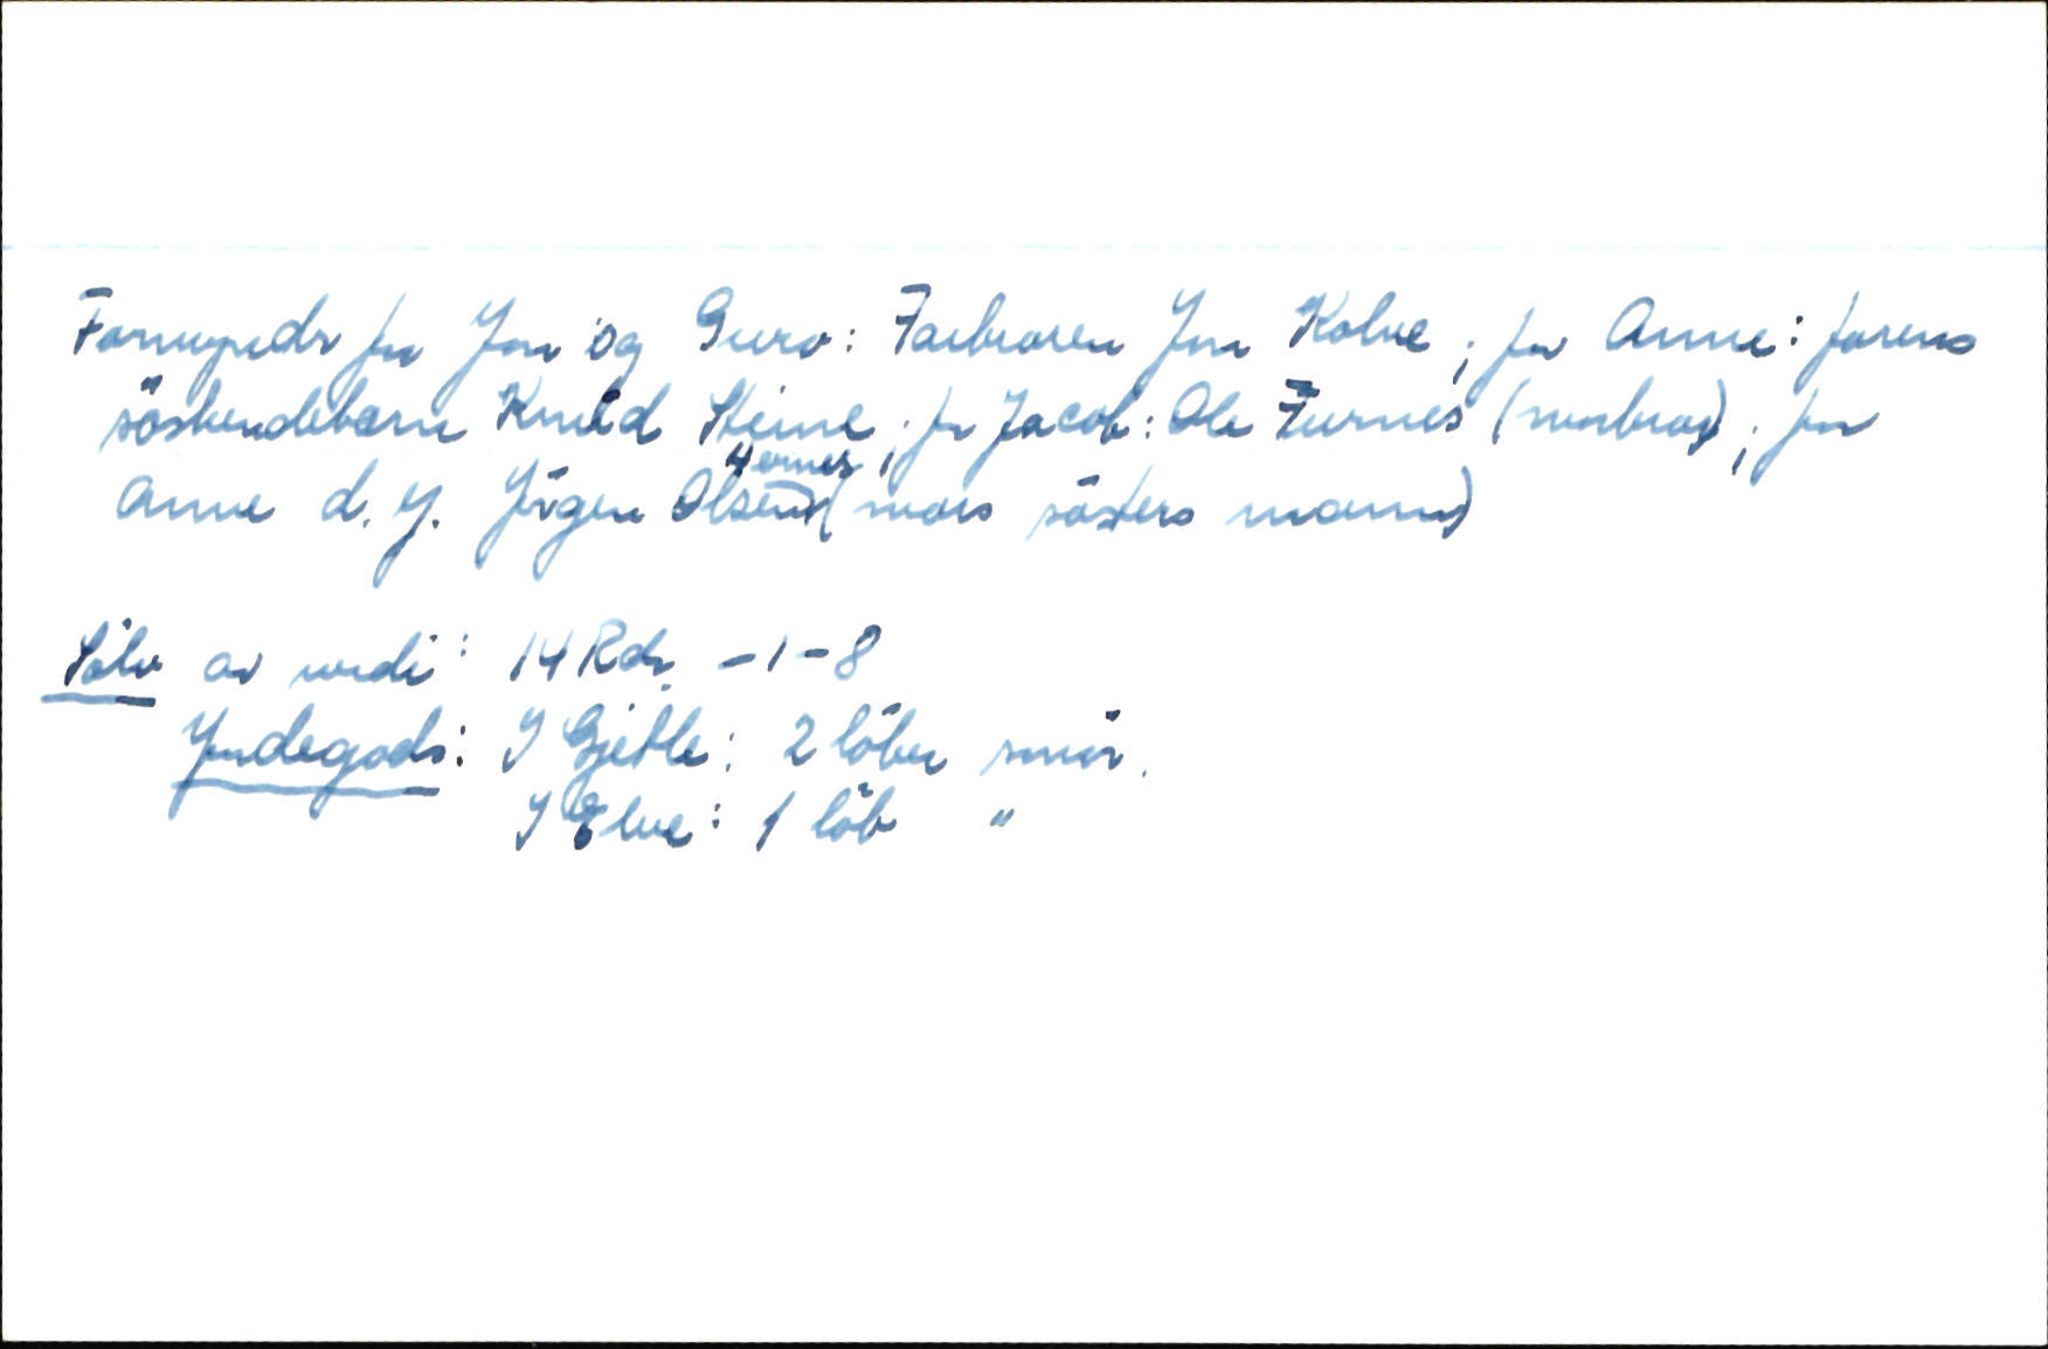 Formyndr for Jon og Guro: Farbroren Jon Kolve; for Anne: farens
söskendebarn Knud Steine; for Jacob: Ole Furnes (morbror); for
Anne d. y. Jörgen Olsen Hernes (mors sösters mann)
Sölv av verdi: 14 Rdr. - 1 - 8
Jordegods: I Gjetle: 2 löber smör.
I Elve: 1 löb "